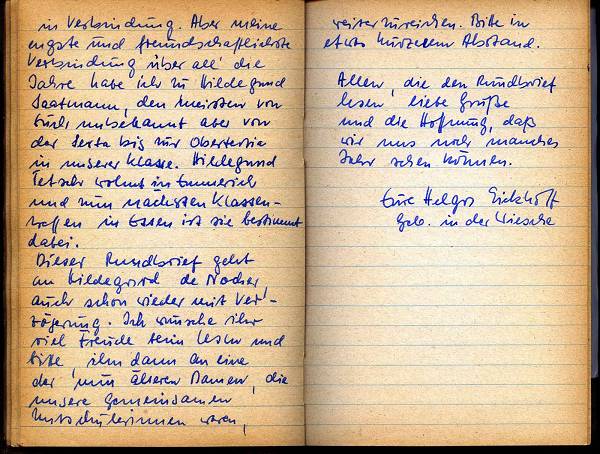 in Verbindung. Aber meine
engste und freundschaftlichste
Verbindung über all' die
Jahre habe ich zu Hildegund
Saatmann, den meisten von
Euch unbekannt aber von
der Sexta bis zur Obertertia
in unserer Klasse. Hildegund
wohnt in Emmerich
und zum nächsten Klassen-
treffen in Essen ist sie bestimmt
dabei.
Dieser Rundbrief geht
an Hildegard de
auch schon wieder mit Ver-
zögerung. Ich wünsche ihr
viel Freude beim Lesen und
bitte, ihn dann an eine
der nun älteren Damen, die
unsere gemeinsamen
Mitschülerinnen waren,
weiterzureichen. Bitte in
etwas kürzerem Abstand.
Allen, die den Rundbrief
lesen, liebe Grüße
und die Hoffnung, daß
wir uns noch manches
Jahr sehen können.
Eure Helga Eickhoff
geb. in der Wiesche